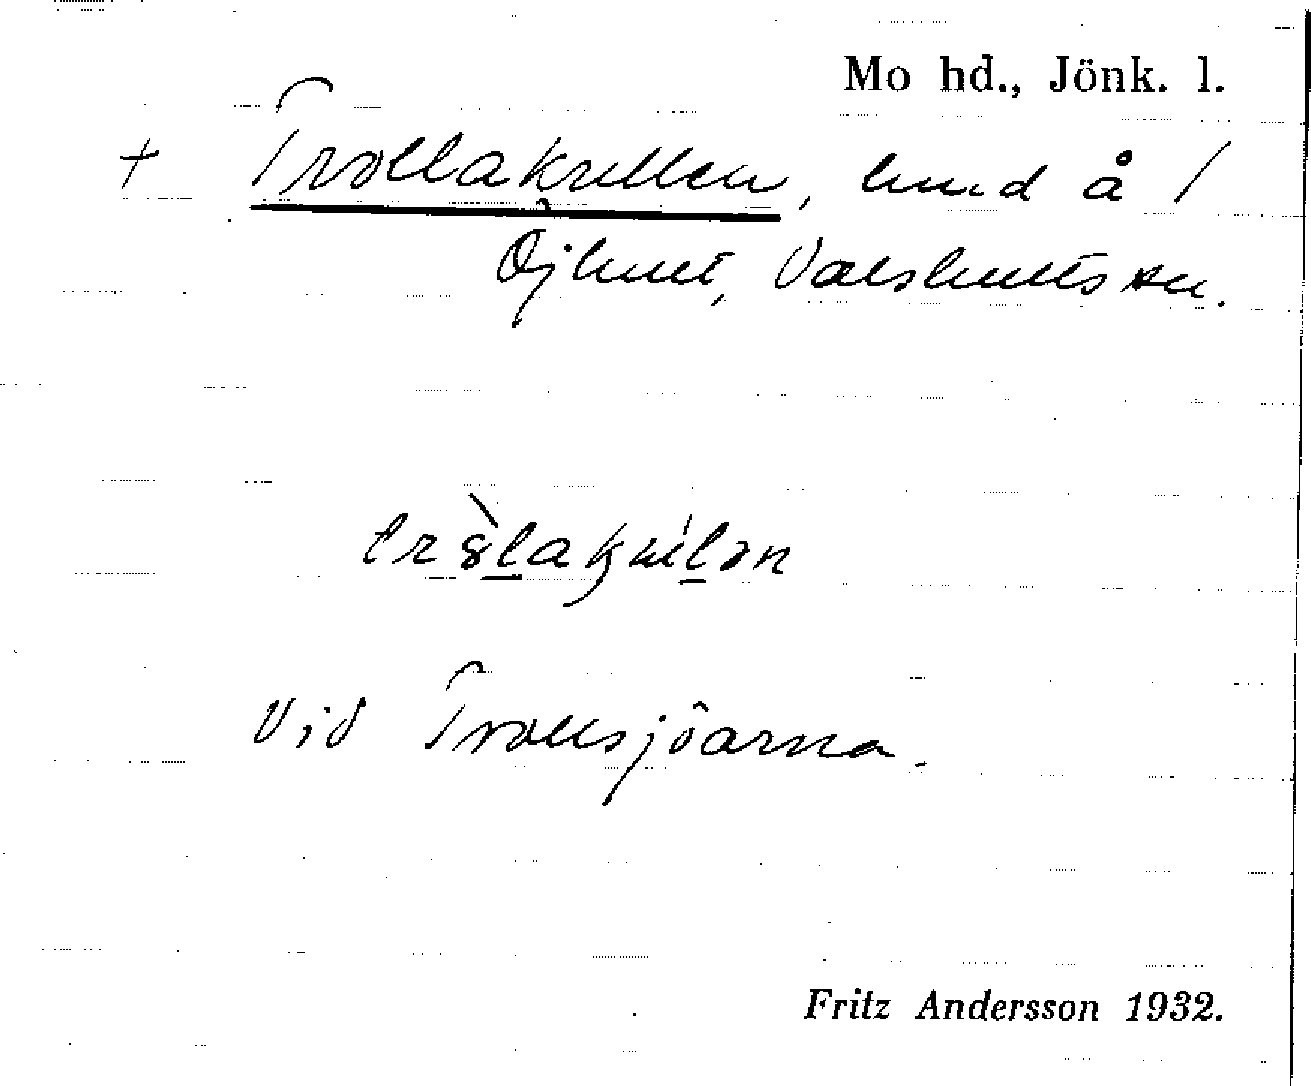 Mo hd., Jönk. l.
+ Trollakullen, lund å /
Öjhult, Valshults sn.
vid Trollsjöarna.
Fritz Andersson 1932.